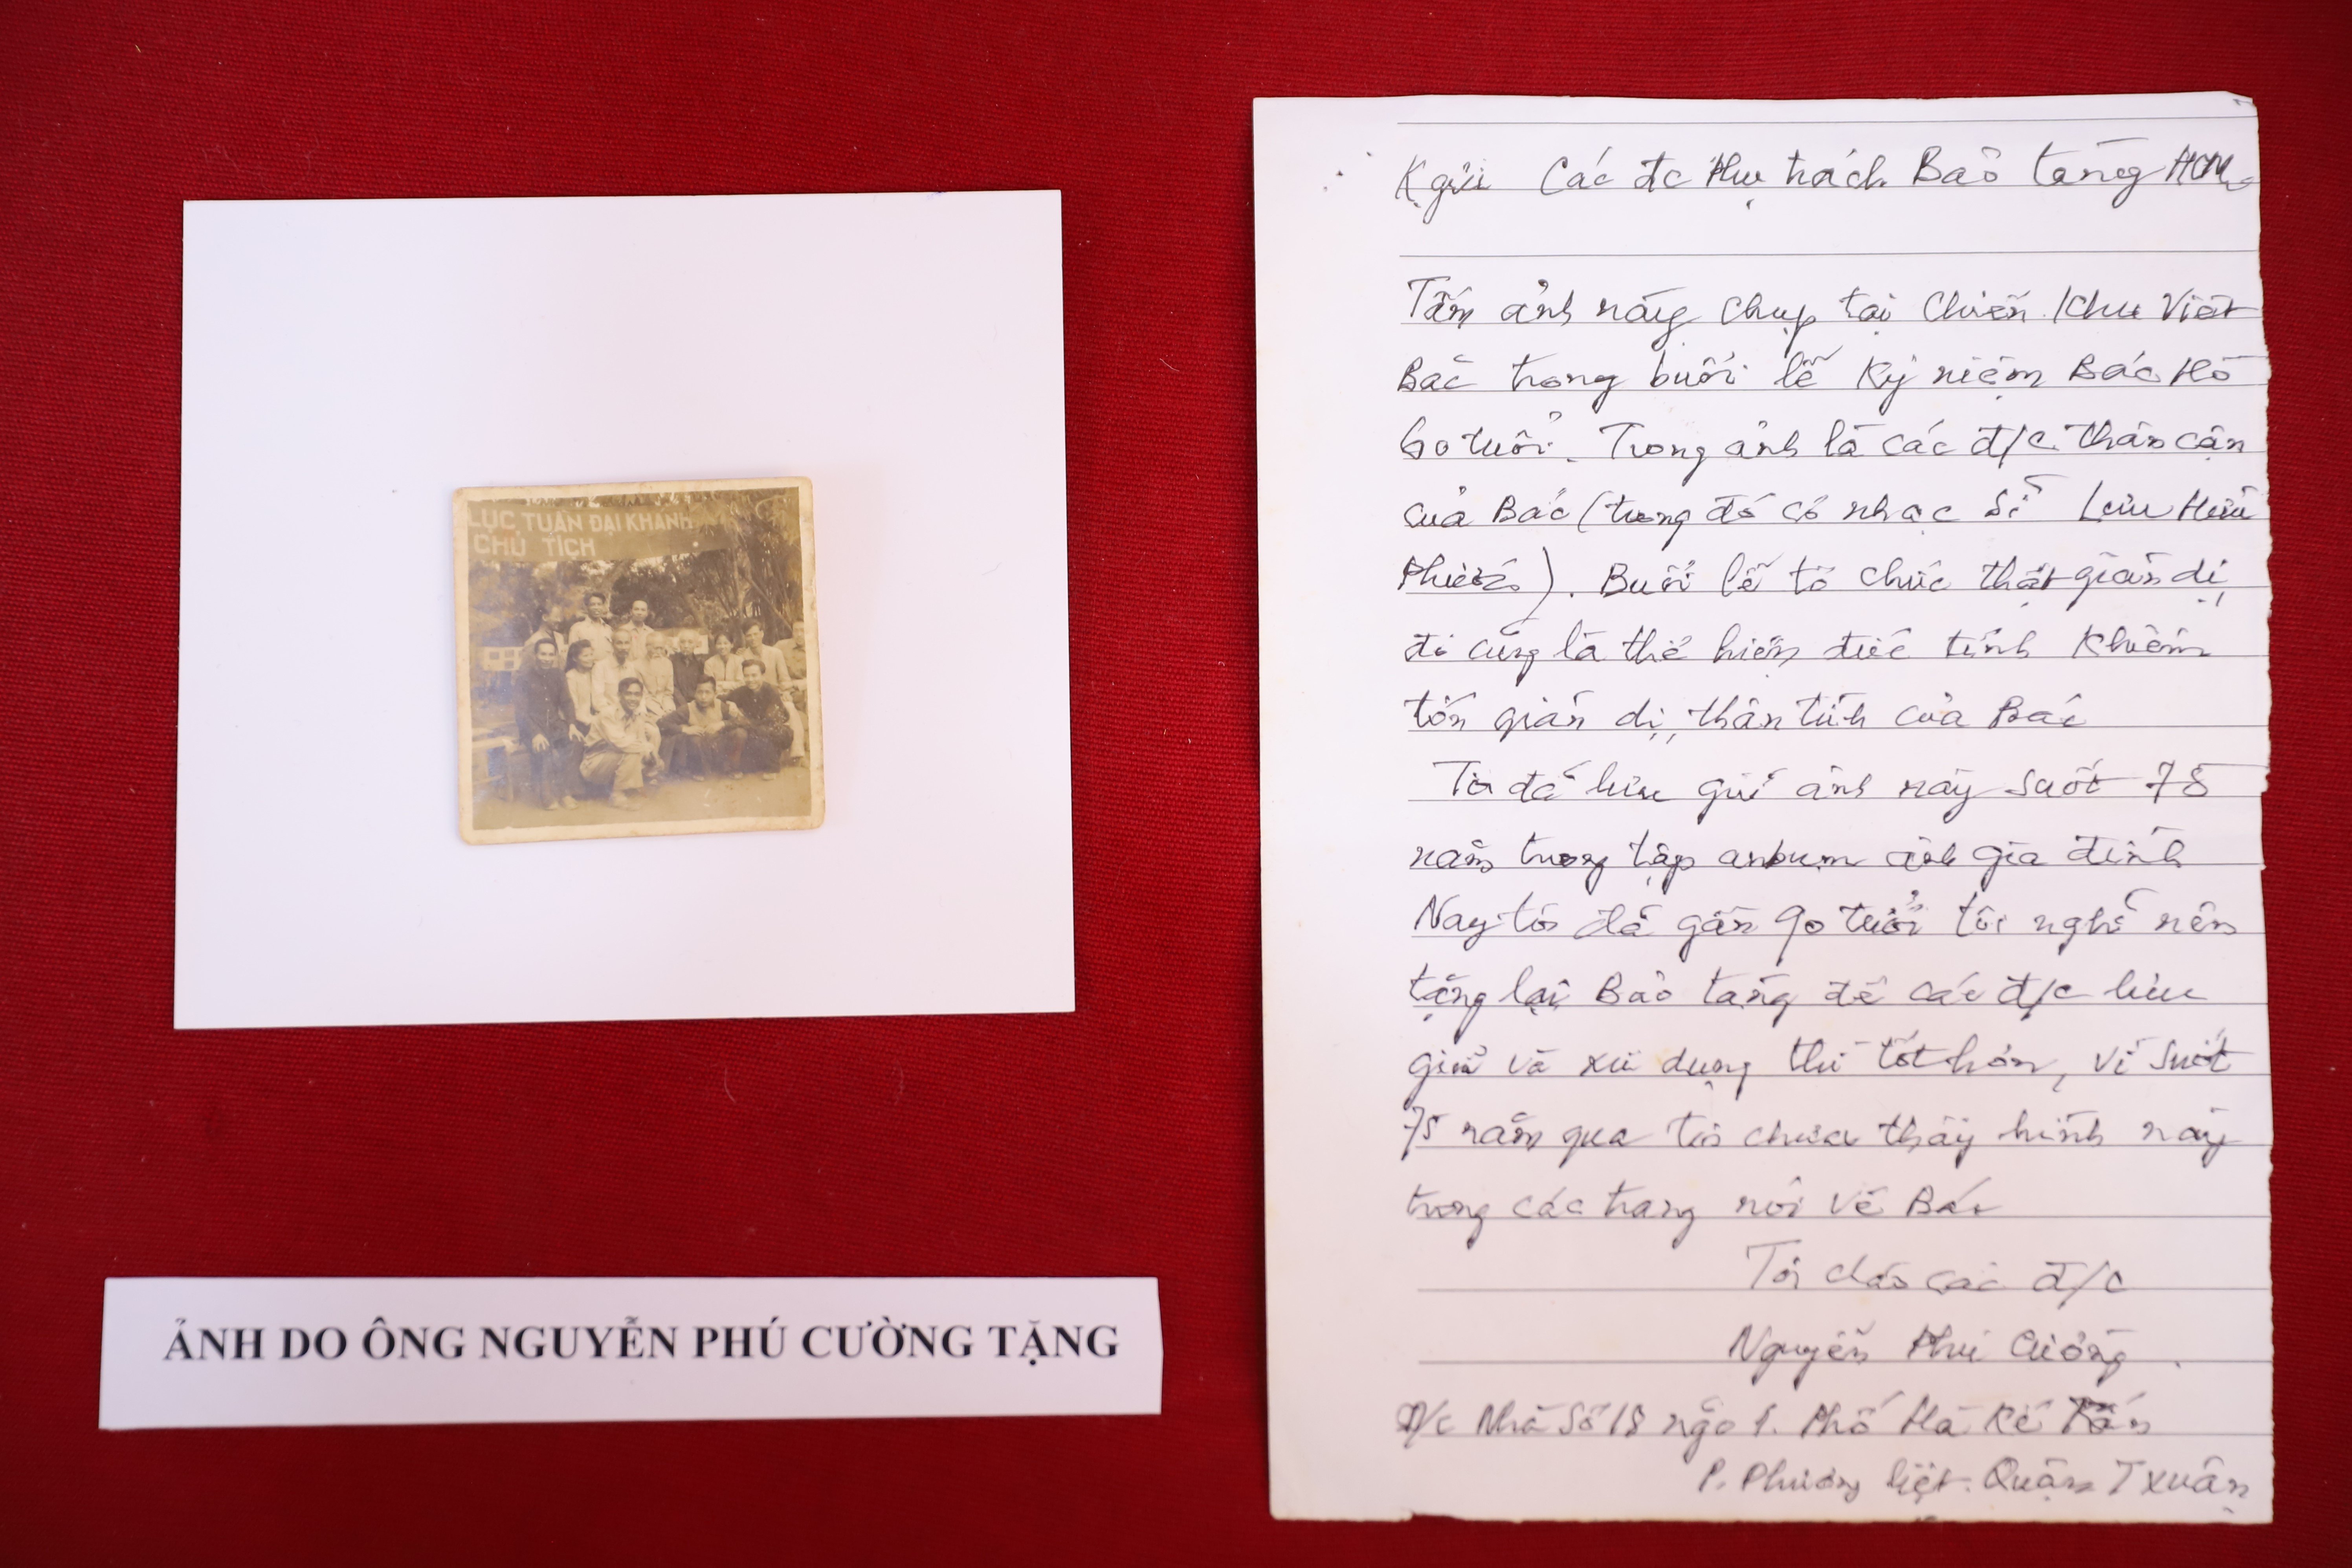 LỤC TUẦN ĐẠI KHÁNH
CHỦ TỊCH
ẢNH DO ÔNG NGUYỄN PHÚ CƯỜNG TẶNG
K gửi Các đc Phụ trách Bảo tàng HCM
Tấm ảnh này chụp tại Chiến Khu Việt
Bắc trong buổi lễ Kỷ niệm Bác Hồ
60 tuổi. Trong ảnh là các đ/c thân cận
của Bác (trong đó có nhạc sĩ Lưu Hữu
Phước). Buổi lễ tổ chức thật giản dị
đó cũng là thể hiện đức tính Khiêm
tốn giản dị, thân tình của Bác
Tôi đã lưu giữ ảnh này suốt 75
năm trong tập anbum ảnh gia đình
Nay tôi đã gần 90 tuổi tôi nghĩ nên
tặng lại Bảo tàng để các đ/c lưu
giữ và xử dụng thì tốt hơn, vì suốt
75 năm qua tôi chưa thấy hình này
trong các trang nói về Bác
Tôi chào các đ/c
Nguyễn Phú Cường.
Đ/c Nhà số 18 ngõ 1. Phố Hà Kế Tấn
P. Phương liệt. Quận T Xuân